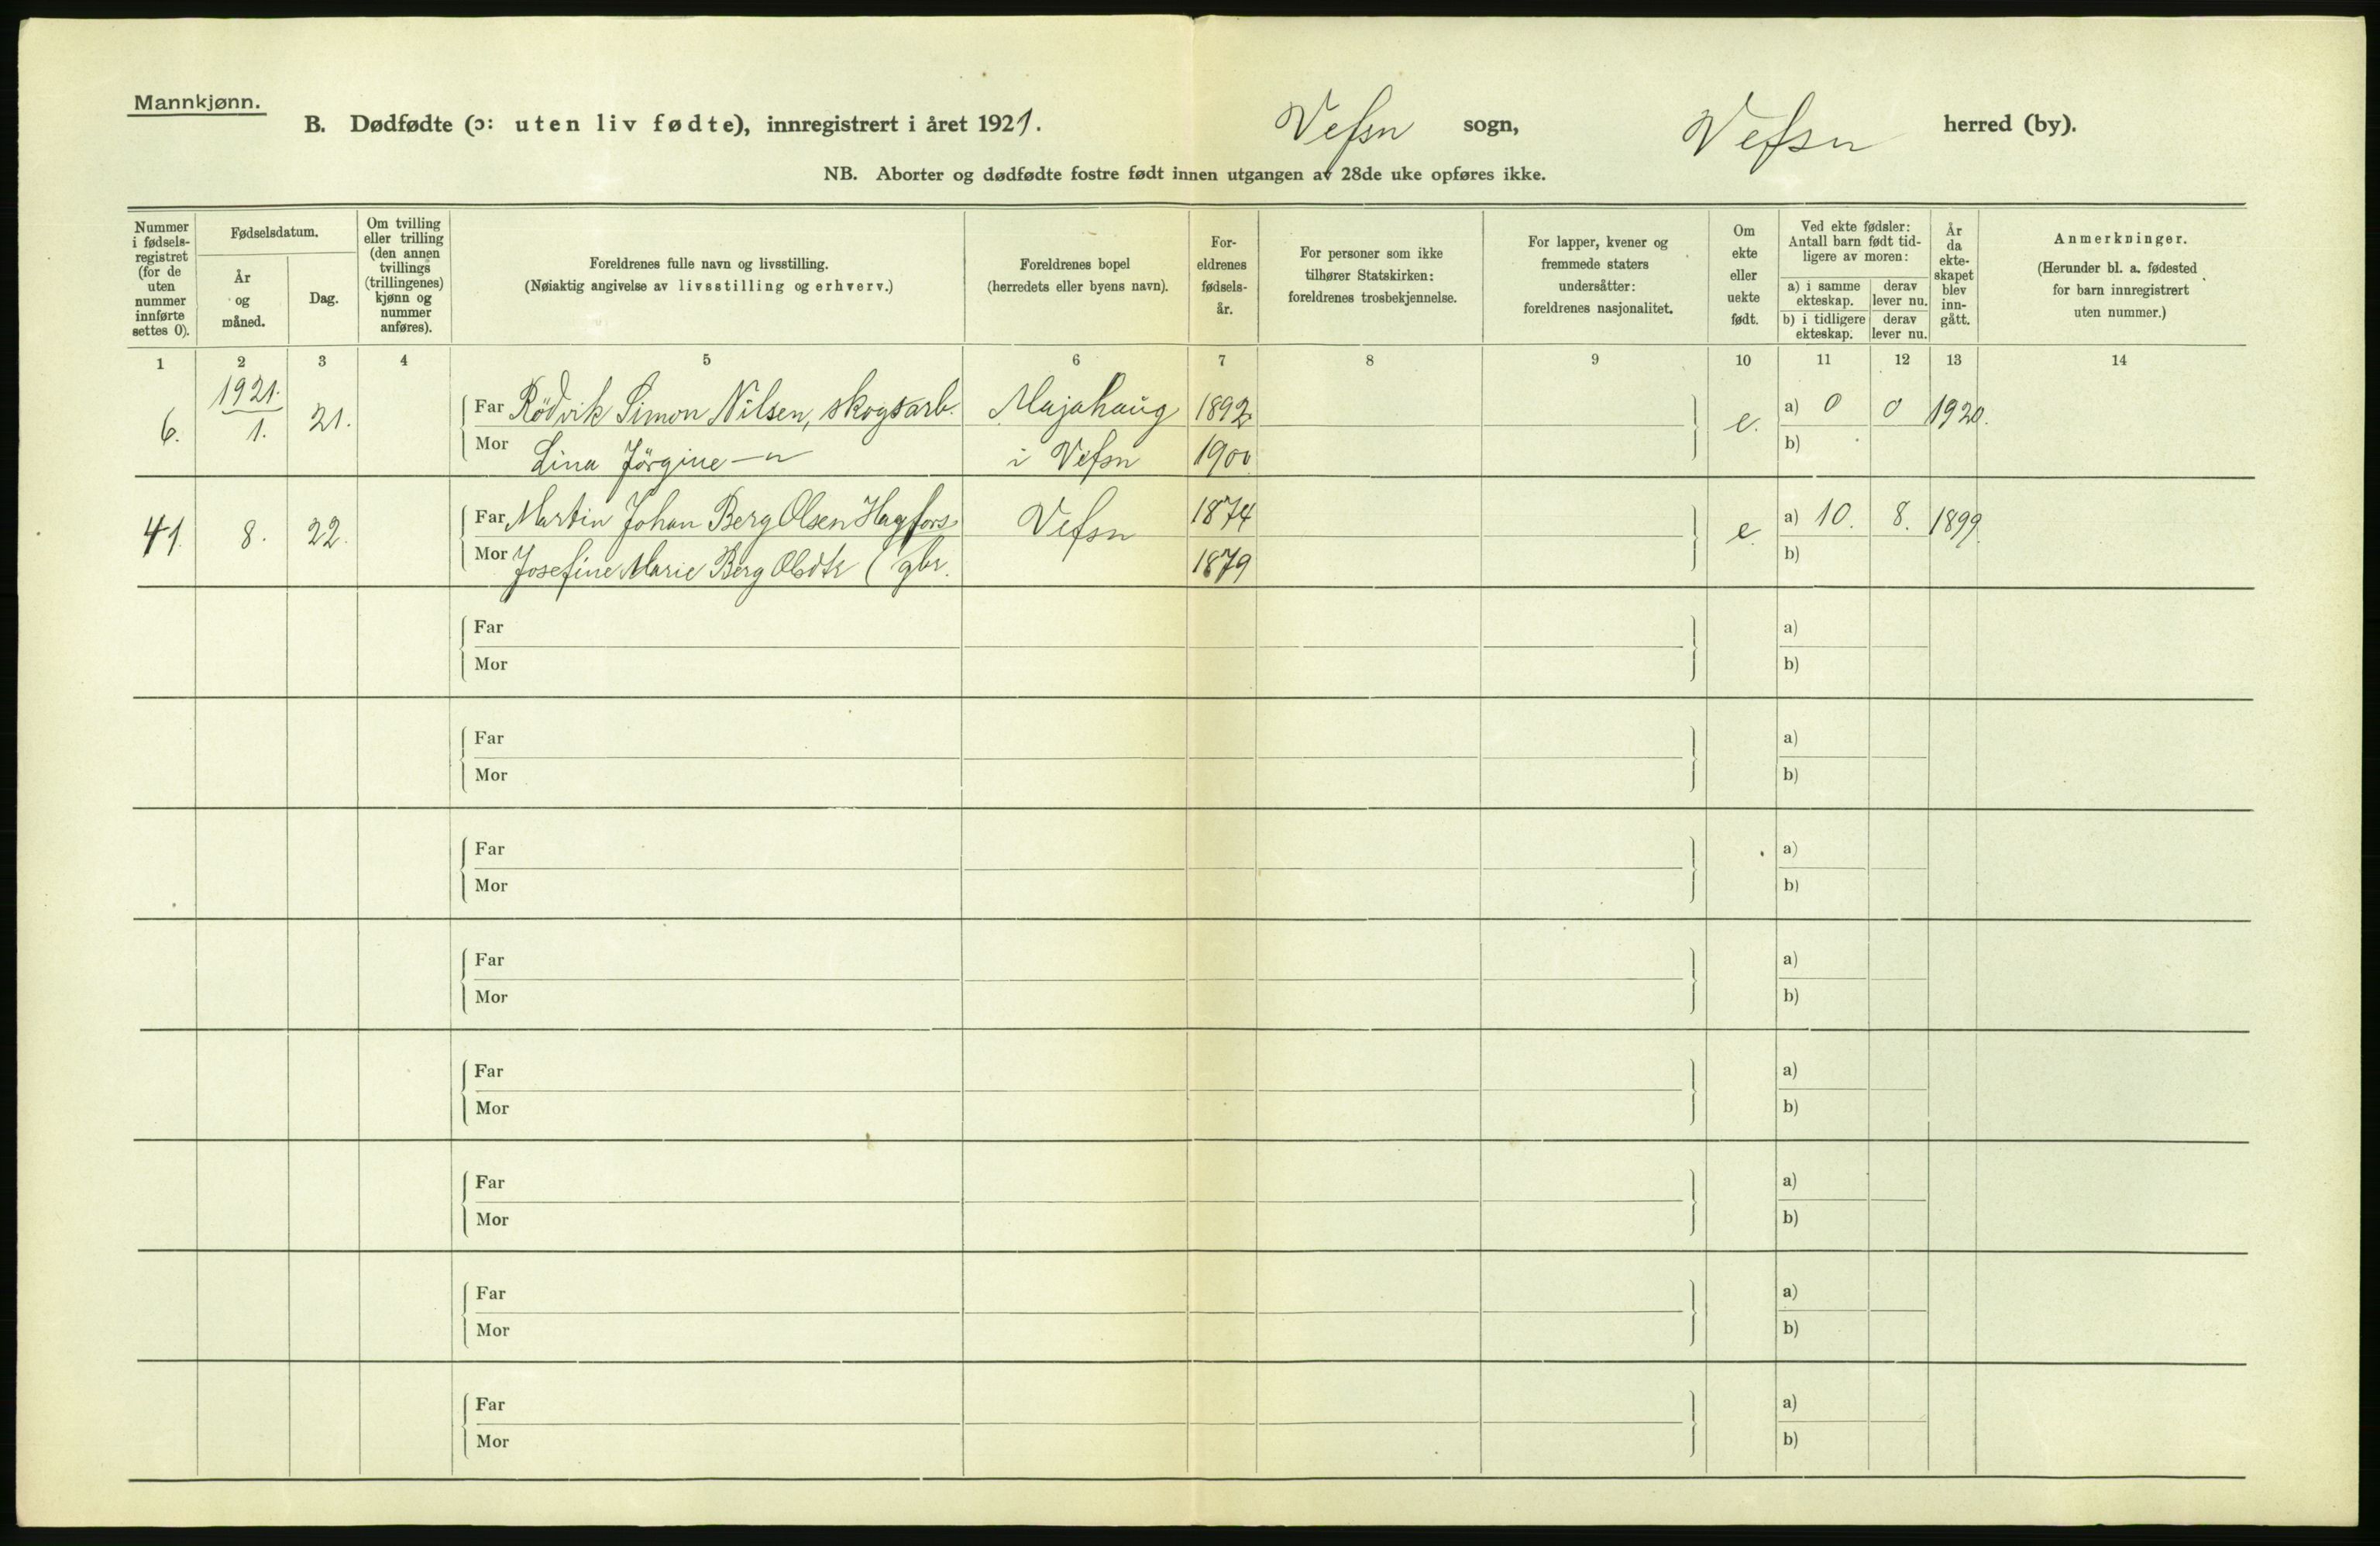 Mannkjønn.
B. Dødfødte (ɔ: uten liv fødte), innregistrert i året 1921. Vefsn sogn, Vefsn herred (by).
NB. Aborter og dødfødte fostre født innen utgangen av 28de uke opføres ikke.
Nummer
i fødsels-
registret
(for de
uten
nummer
innførte
settes 0).
Fødselsdatum.
År
og
måned.
Dag.
Om tvilling
eller trilling
(den annen
tvillings
(trillingenes)
kjønn og
nummer
anføres).
Foreldrenes fulle navn og livsstilling.
(Nøiaktig angivelse av livsstilling og erhverv.)
Foreldrenes bopel
(herredets eller byens navn).
For-
eldrenes
fødsels-
år.
For personer som ikke
tilhører Statskirken:
foreldrenes trosbekjennelse.
For lapper, kvener og
fremmede staters
undersåtter:
foreldrenes nasjonalitet.
Om
ekte
eller
uekte
født.
Ved ekte fødsler:
Antall barn født tid-
ligere av moren:
a) i samme
ekteskap.
derav
lever nu.
b) i tidligere
ekteskap.
derav
lever nu.
År
da
ekte-
skapet
blev
inn-
gått.
Anmerkninger.
(Herunder bl. a. fødested
for barn innregistrert
uten nummer.)
1 2 3 4 5 6 7 8 9 10 11 12 13 14
1921.
6. 1. 21. Far Rödvik Simon Nilsen, skogsarb. Majahaug 1892 e. a) 0 0 1920.
Mor Lina Jörgine —"— i Vefsn 1900 b)
41. 8. 22. Far Martin Johan Berg Olsen Hagfors Vefsn 1874 e. a) 10. 8. 1899.
Mor Josefine Marie Berg Olsdtr (gbr. 1879 b)
Far a)
Mor b)
Far a)
Mor b)
Far a)
Mor b)
Far a)
Mor b)
Far a)
Mor b)
Far a)
Mor b)
Far a)
Mor b)
Far a)
Mor b)